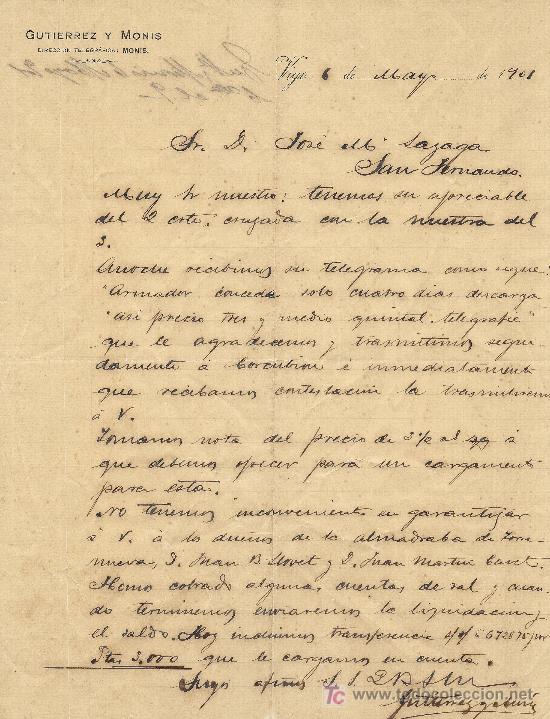 GUTIERREZ Y MONIS
DIRECCIÓN TELEGRÁFICA: MONIS.
Vigo 6 de Mayo de 1901
Sr. D. José Mª Lazaga
San Fernando.
Muy Sr nuestro: tenemos su apreciable
del 2 cote. cruzada con la nuestra del
3.
Anoche recibimos su telegrama como sigue:
"Armador concede solo cuatro dias descarga
"Asi precio tres y medio quintal. telegrafie"
que le agradecemos y trasmitimos segui-
damente á Corcubion é inmediatamente
que recibamos contestación la trasmitiremos
á V.
Tomamos nota del precio de 3 1/2 á
que debemos ofrecer para un cargamento
para esta.
No tenemos inconveniente en garantizar
á V. á los dueños de la almadraba de Torre-
nueva, D. Juan B Llovet y D. Juan Martin
Hemos cobrado algunas cuentas de sal y cuan-
do terminemos enviaremos la liquidacion y
el saldo. Hoy incluimos transferencia nº 672875 por
Ptas 3.000 que le cargamos en cuenta.
Suyos afmos S. S. Q B S M
Gutierrez y Monis
TC todocoleccion.net